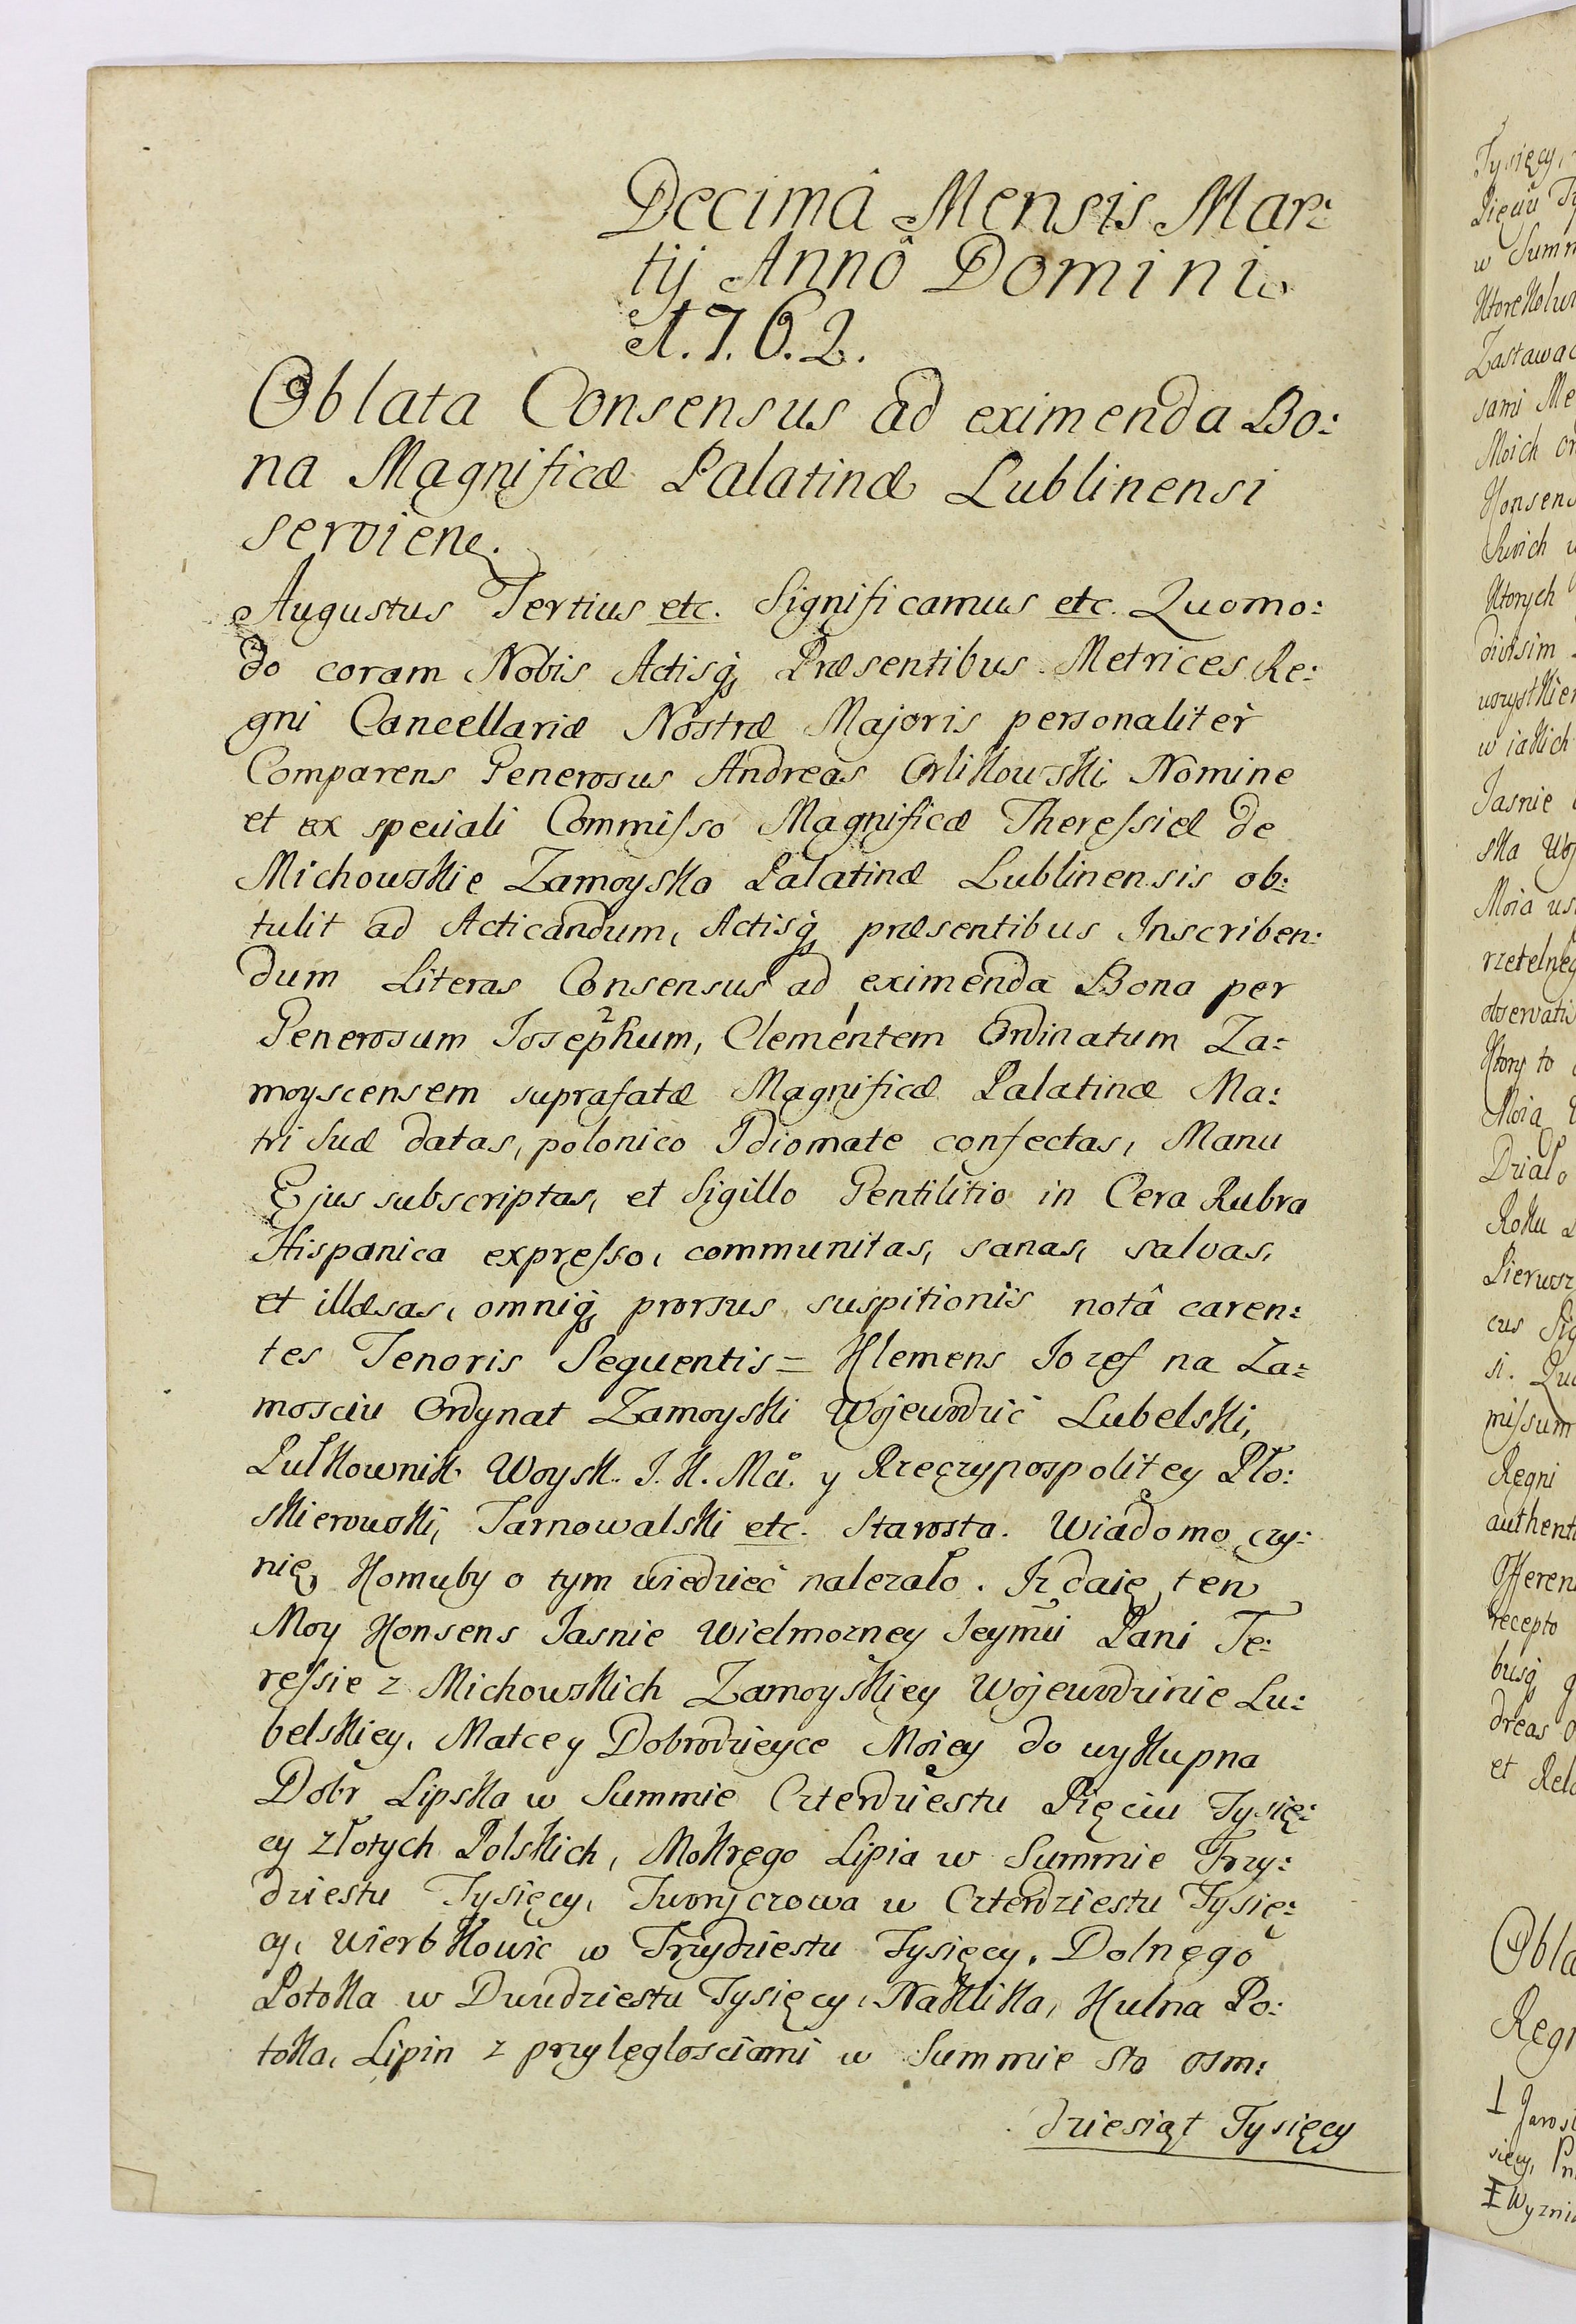 Decimâ Mensis Mar:
tij Annô Domini
1.7.6.2.
Oblata Consensus ad eximenda Bo:
na Magnificæ Palatinæ Lublinensi
servien.
Augustus Tertius etc. Significamus etc. Quomo:
do coram Nobis Actisq; Præsentibus Metrices Re:
gni Cancellariæ Nostræ Majoris personaliter
Comparens Generosus Andreas Orlikowski Nomine
et ex speciali Commisso Magnificæ Theressiæ de
Michowskie Zamoyska Palatinæ Lublinensis ob:
tulit ad Acticandum, Actisq; præsentibus Inscriben:
dum Literas Consensus ad eximenda Bona per
Generosum Josephum, Clementem Ordinatum Za:
moyscensem suprafatæ Magnificæ Palatinæ Ma:
tri suæ datas, polonico Idiomate confectas, Manu
Ejus subscriptas, et Sigillo Gentilitio in Cera Rubra
Hispanica expresso, communitas, sanas, salvas,
et illæsas, omniq; prorsus suspitionis notâ caren:
tes Tenoris Sequentis = Klemens Jozef na Za:
mosciu Ordynat Zamoyski Wojewodzic Lubelski,
Pułkownik Woysk J. K. Mci. y Rzeczypospolitey Pło:
skierowski, Tarnowalski etc. Starosta. Wiadomo czy:
nię, Komuby o tym wiedzieć nalezało. Iz daię ten
Moy Konsens Jasnie Wielmozney Jeymci Pani Te:
ressie z Michowskich Zamoyskiey Wojewodzinie Lu:
belskiey, Matce y Dobrodzieyce Moiey do wykupna
Dobr Lipska w Summie Czterdziestu Pięciu Tysię:
cy złotych Polskich, Mokręgo Lipia w Summie Trzy:
dziestu Tysięcy, Tworyczowa w Czterdziestu Tysię:
cy, Wierbkowic w Trzydziestu Tysięcy, Dolnęgo
Potoka w Dwudziestu Tysięcy, Naklika, Kulna Po:
toka, Lipin z przylęglosciami w Summie sto osm:
dziesiąt Tysięcy